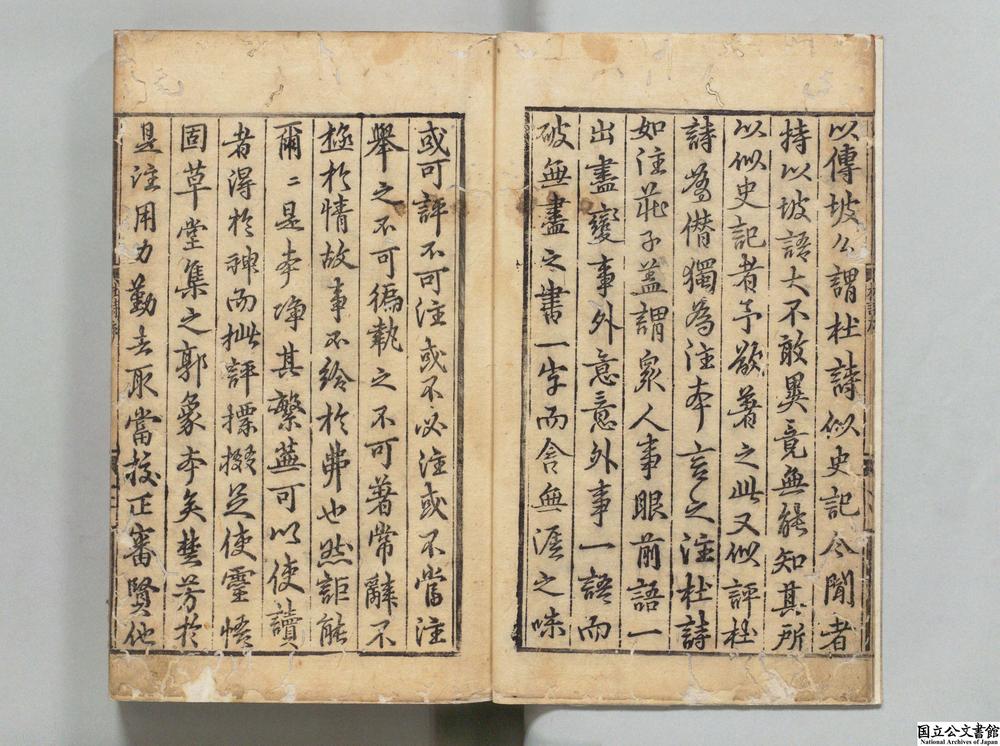 以傳坡公謂杜詩似史記今聞者
持以坡語大不敢異竟無能知其所
以似史記者予欲著之此又似評杜
詩爲僭獨為注本言之注杜詩
如注莊子盖謂衆人事眼前語一
出盡變事外意意外事一語而
破無盡之書一字而含無涯之味
或可評不可注或不必注或不當注
舉之不可徧執之不可著常辭不
極於情故事不給於弗也然詎能
爾〻是本淨其繁蕪可以使讀
者得於神而批評摽掇足使靈悟
固草堂集之郭象本矣楚芳於
是注用力勤去取當校正審賢他
国立公文書館
National Archives of Japan